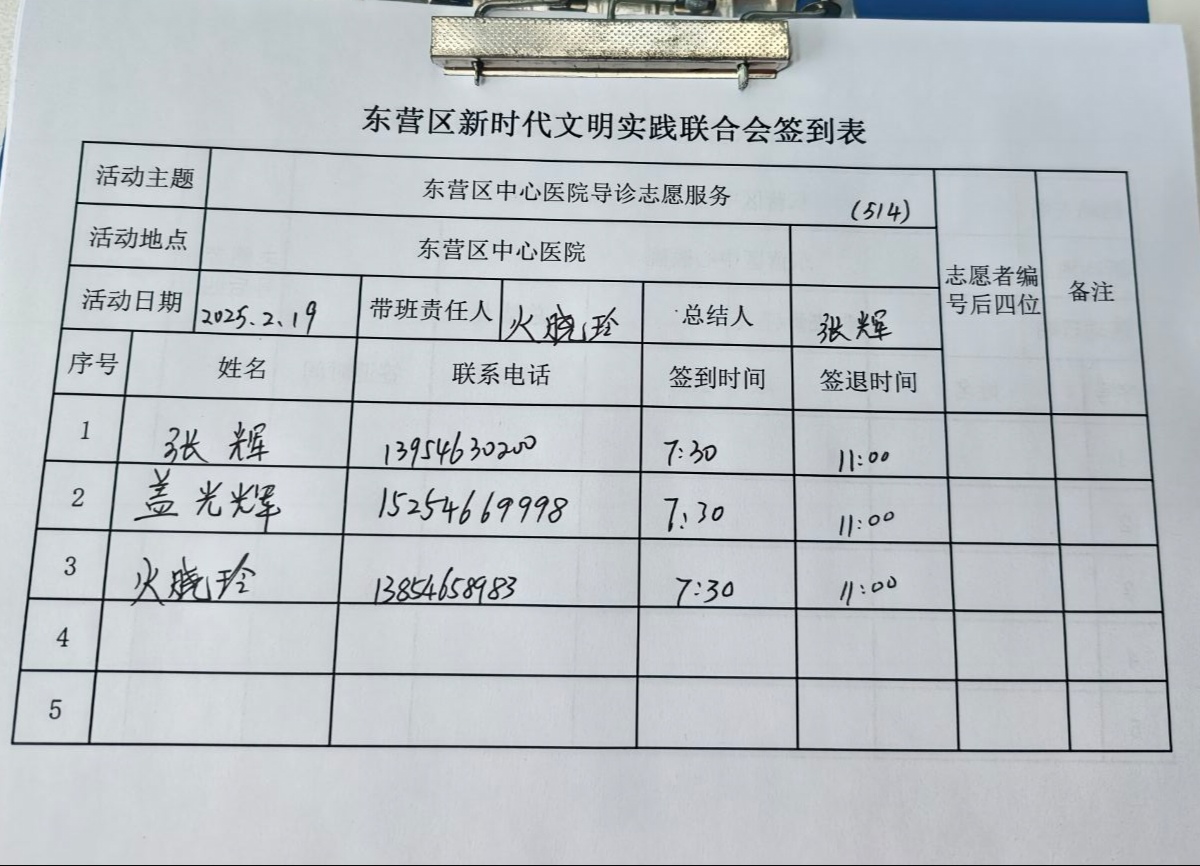 东营区新时代文明实践联合会签到表
活动主题 东营区中心医院导诊志愿服务 (514) 志愿者编号后四位 备注
活动地点 东营区中心医院
活动日期 2025.2.19 带班责任人 火晓玲 总结人 张辉
序号 姓名 联系电话 签到时间 签退时间
1 张辉 13954630200 7:30 11:00
2 盖光辉 15254669998 7:30 11:00
3 火晓玲 13854658983 7:30 11:00
4
5